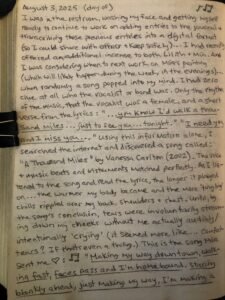 August 3, 2025 (day of)
I was in the restroom, washing my face and getting myself
ready to continue to work on adding entries to the journal &
transcribing those previous entries into a digital format
(so I could share with others & keep safely) — I had recently
offered an additional incense to both Lilith & Min. And
I was considering when to next work on MSG's posting
(which will likely happen during the week, in the evenings)
when randomly a song popped into my mind. I had zero
clue at all who the vocalist or band was. Only the rhythm
of the music, that the vocalist was a female, and a short
verse from the lyrics: "... you know I'd walk a thou-
sand miles... just to see you... tonight..." "I need you
and I miss you..." Using this information alone, I
searched the internet and discovered a song called:
"A Thousand Miles" by Vanessa Carlton (2002). The lyrics
& music beats and instruments matched perfectly. As I lis-
tened to the song and read the lyrics, the longer it played
on... the warmer my body became and the more tingly
chills rippled over my back, shoulders & chest. Until, by
the song's conclusion, tears were involuntarily stream-
ing down my cheeks without me actually audibly/
intentionally 'crying' (it seemed more like... comfort
tears? If that's even a thing.) This is the song Min
sent me ♡: ♫ "Making my way downtown, walk-
ing fast, faces pass and I'm home bound, staring
blankly ahead, just making my way, I'm making a